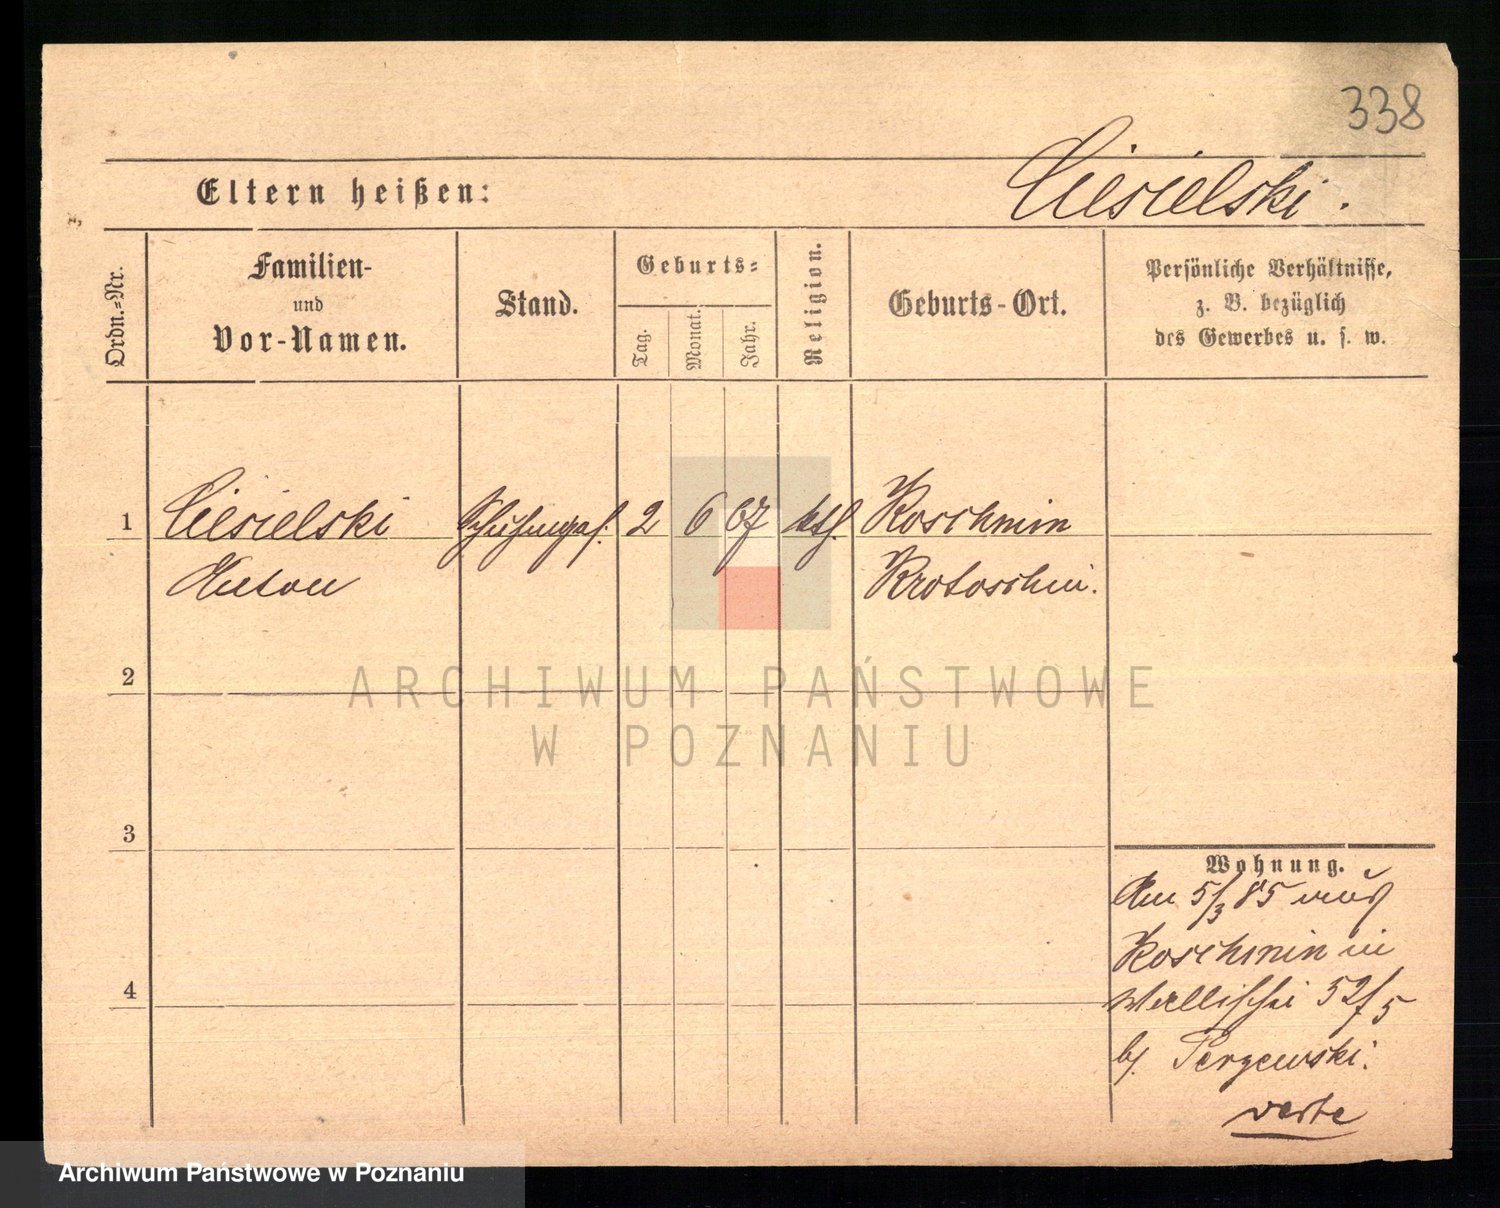 338
Eltern heißen:
Ciesielski.
Ordn.-Nr.
Familien-
und
Vor-Namen.
Stand.
Geburts-
Tag.
Monat.
Jahr.
Religion.
Geburts-Ort.
Persönliche Verhältnisse,
z. B. bezüglich
des Gewerbes u. s. w.
1 Ciesielski 2 6 67 kth. Koschmin
Anton Krotoschin.
2
3
4
Wohnung.
Am 5/3 85 aus
Koschmin in
Wallischei 52/5
bj.
verte
ARCHIWUM PAŃSTWOWE
W POZNANIU
Archiwum Państwowe w Poznaniu